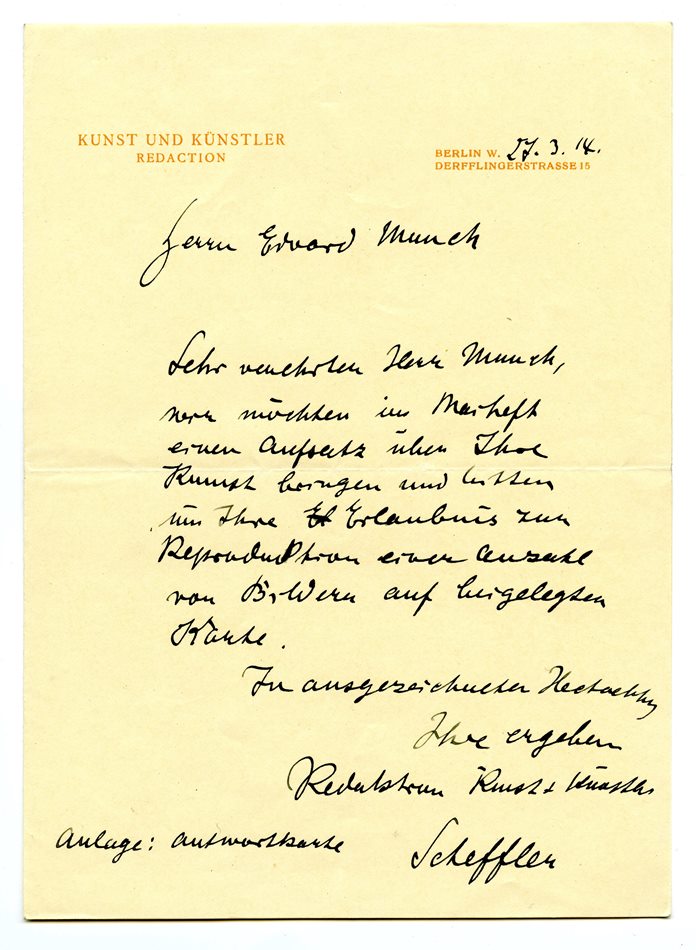 KUNST UND KÜNSTLER
REDACTION
BERLIN W. 27. 3. 14.
DERFFLINGERSTRASSE 15
Herrn Edvard Munch
Sehr verehrter Herr Munch,
wir möchten im Maiheft
einen Aufsatz über Ihre
Kunst bringen und bitten
um Ihre Erlaubnis zur
Reproduktion einer Anzahl
von Bildern auf beigelegter
Karte.
In ausgezeichneter Hochachtung
Ihre ergeben
Redaktion Kunst + Künstler
Anlage: Antwortkarte
Scheffler